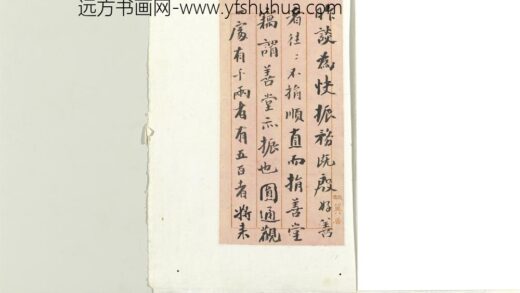 远方书画网--www.yfshuhua.com
昨談為快振務既殷好善
者往〻不捐順直而捐善堂
竊謂善堂亦振也圓通觀
處有千兩者有五百者將来